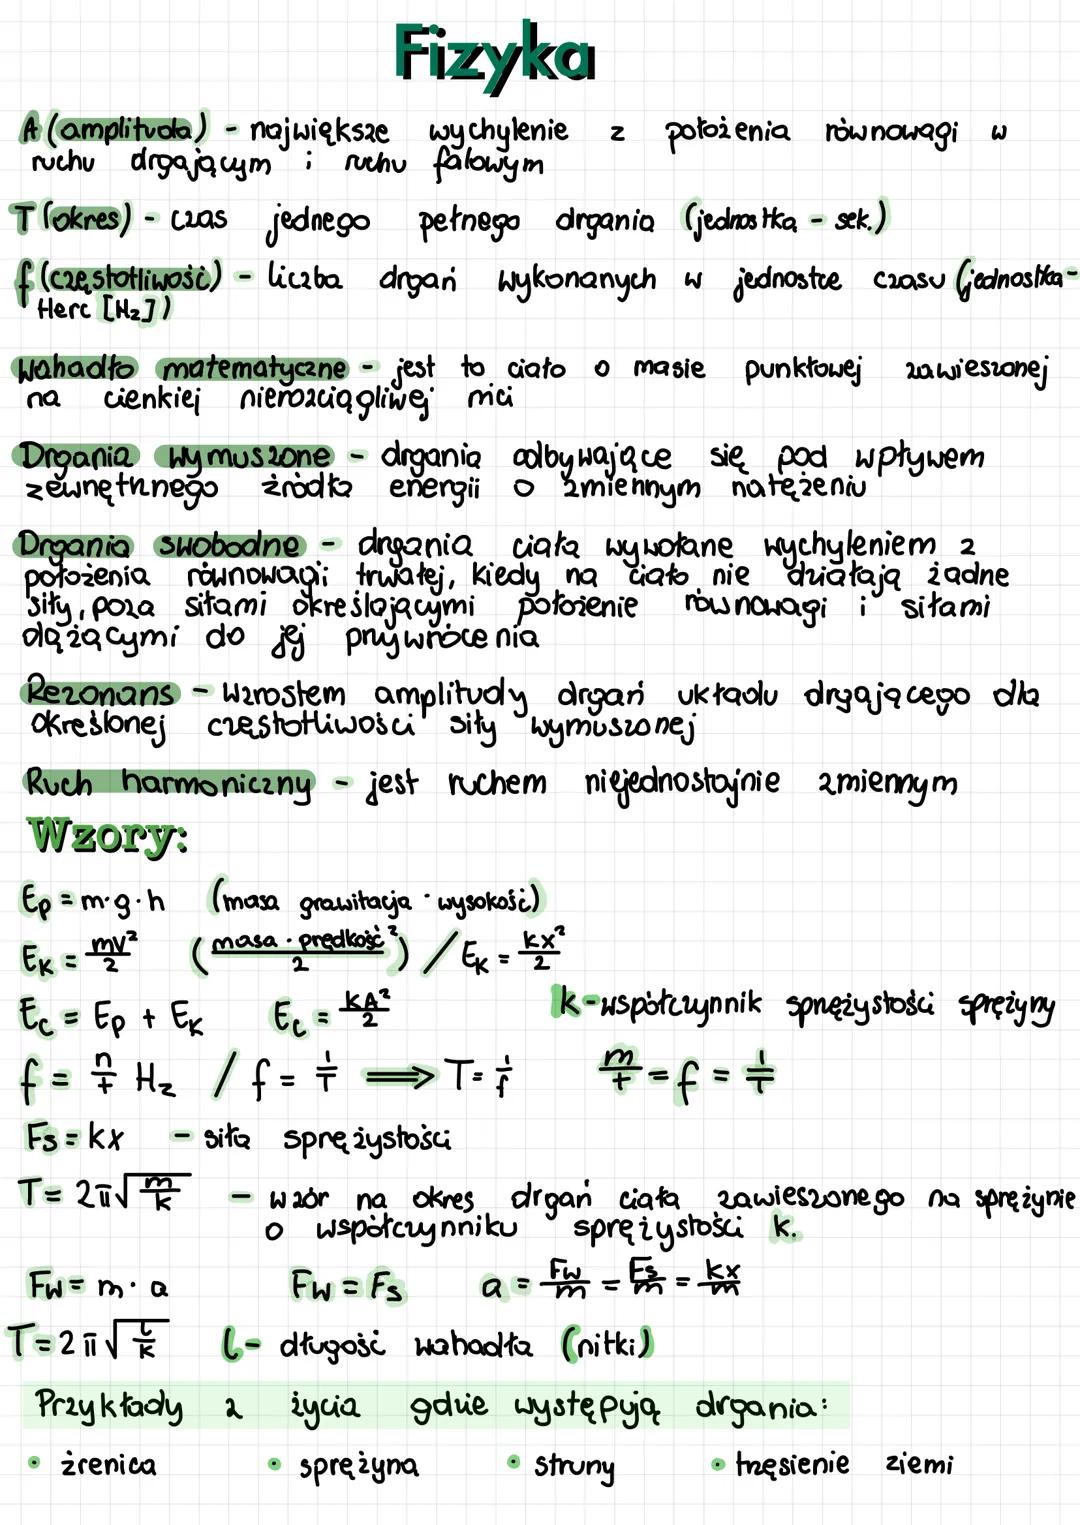 Fizyka
A (amplituda) - największe wychylenie z położenia równowagi w
ruchu drgającym i ruchu falowym
T (okres) - czas jednego pełnego drgania (jednostka - sek.)
f (częstotliwość) - liczba drgań wykonanych w jednostce czasu (jednostka-
Herc [Hz])
Wahadło matematyczne - jest to ciało o masie punktowej zawieszonej
na cienkiej nierozciągliwej nici
Drgania wymuszone - drgania odbywające się pod wpływem
zewnętrznego źródła energii o zmiennym natężeniu
Drgania swobodne - drgania ciała wywołane wychyleniem z
położenia równowagi trwałej, kiedy na ciało nie działają żadne
siły, poza siłami określającymi położenie równowagi i siłami
dążącymi do jej przywrócenia
Rezonans - wzrostem amplitudy drgań układu drgającego dla
określonej częstotliwości siły wymuszonej
Ruch harmoniczny - jest ruchem niejednostajnie zmiennym
Wzory:
Ep = m·g·h (masa grawitacja · wysokość)
EK = mv²/2 (masa · prędkość²/2) / EK = kx²/2
Ec = Ep + EK Ec = kA²/2 k - współczynnik sprężystości sprężyny
f = n/t Hz / f = 1/T ⟹ T = 1/f m/t = f = 1/T
Fs = kx - siła sprężystości
T = 2π√m/k - wzór na okres drgań ciała zawieszonego na sprężynie
o współczynniku sprężystości k.
Fw = m · a Fw = Fs a = Fw/m = Fs/m = kx/m
T = 2π√l/k l - długość wahadła (nitki)
Przykłady z życia gdzie występują drgania:
• źrenica • sprężyna • struny • trzęsienie ziemi